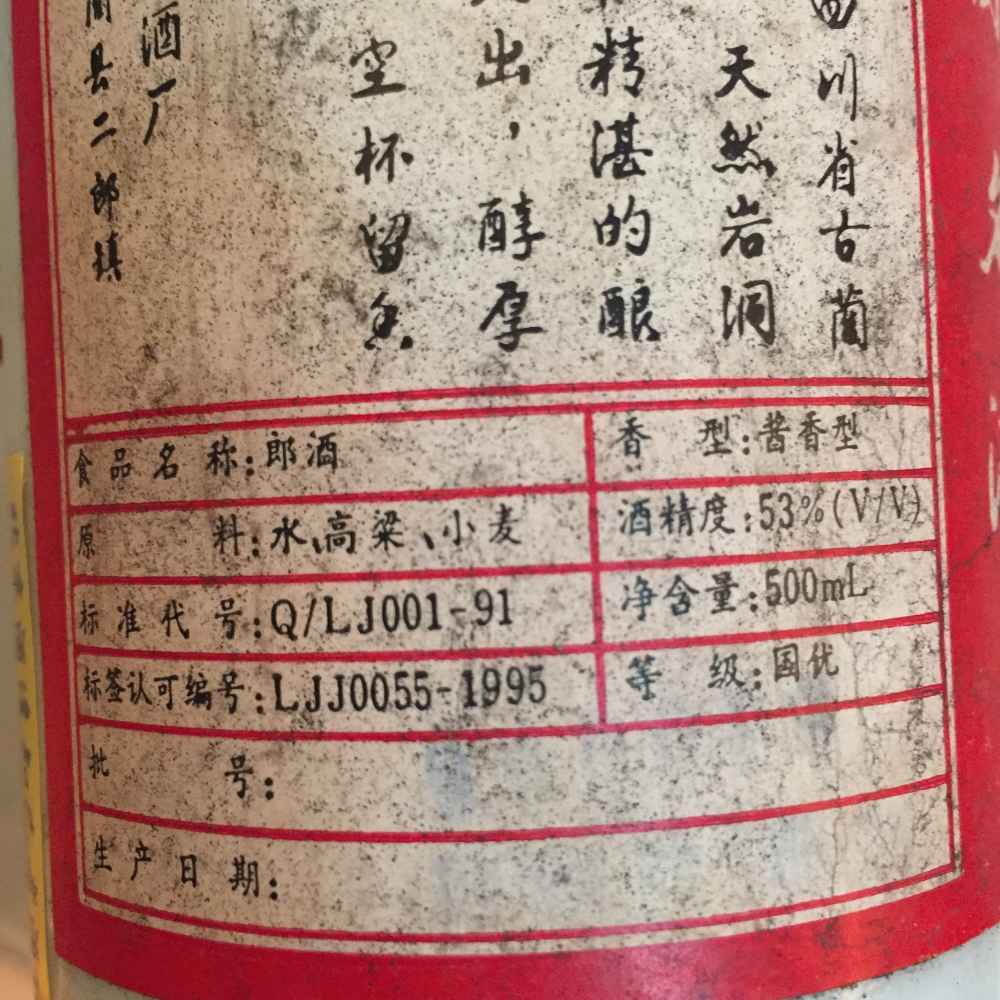 四川省古蔺
天然岩洞
精湛的酿
出，醇厚
空杯留香
酒厂
蔺县二郎镇
食品名称:郎酒
香型:酱香型
原料:水、高粱、小麦
酒精度:53%(V/V)
标准代号:Q/LJ001-91
净含量:500mL
标签认可编号:LJJ0055-1995
等级:国优
批号:
生产日期: